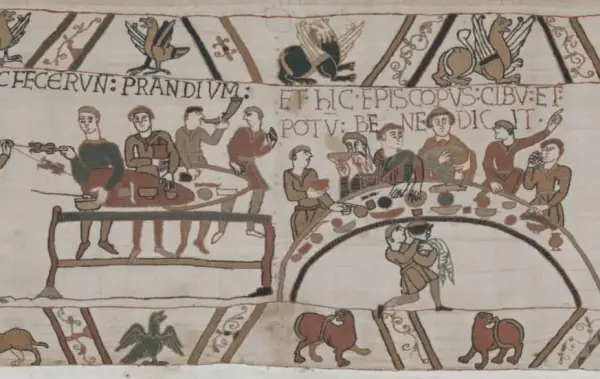 C FECERVN: PRANDIVM:
ET· hIC· EPISCOPVS: CIBV: ET·
POTV: BE NE DIC IT·